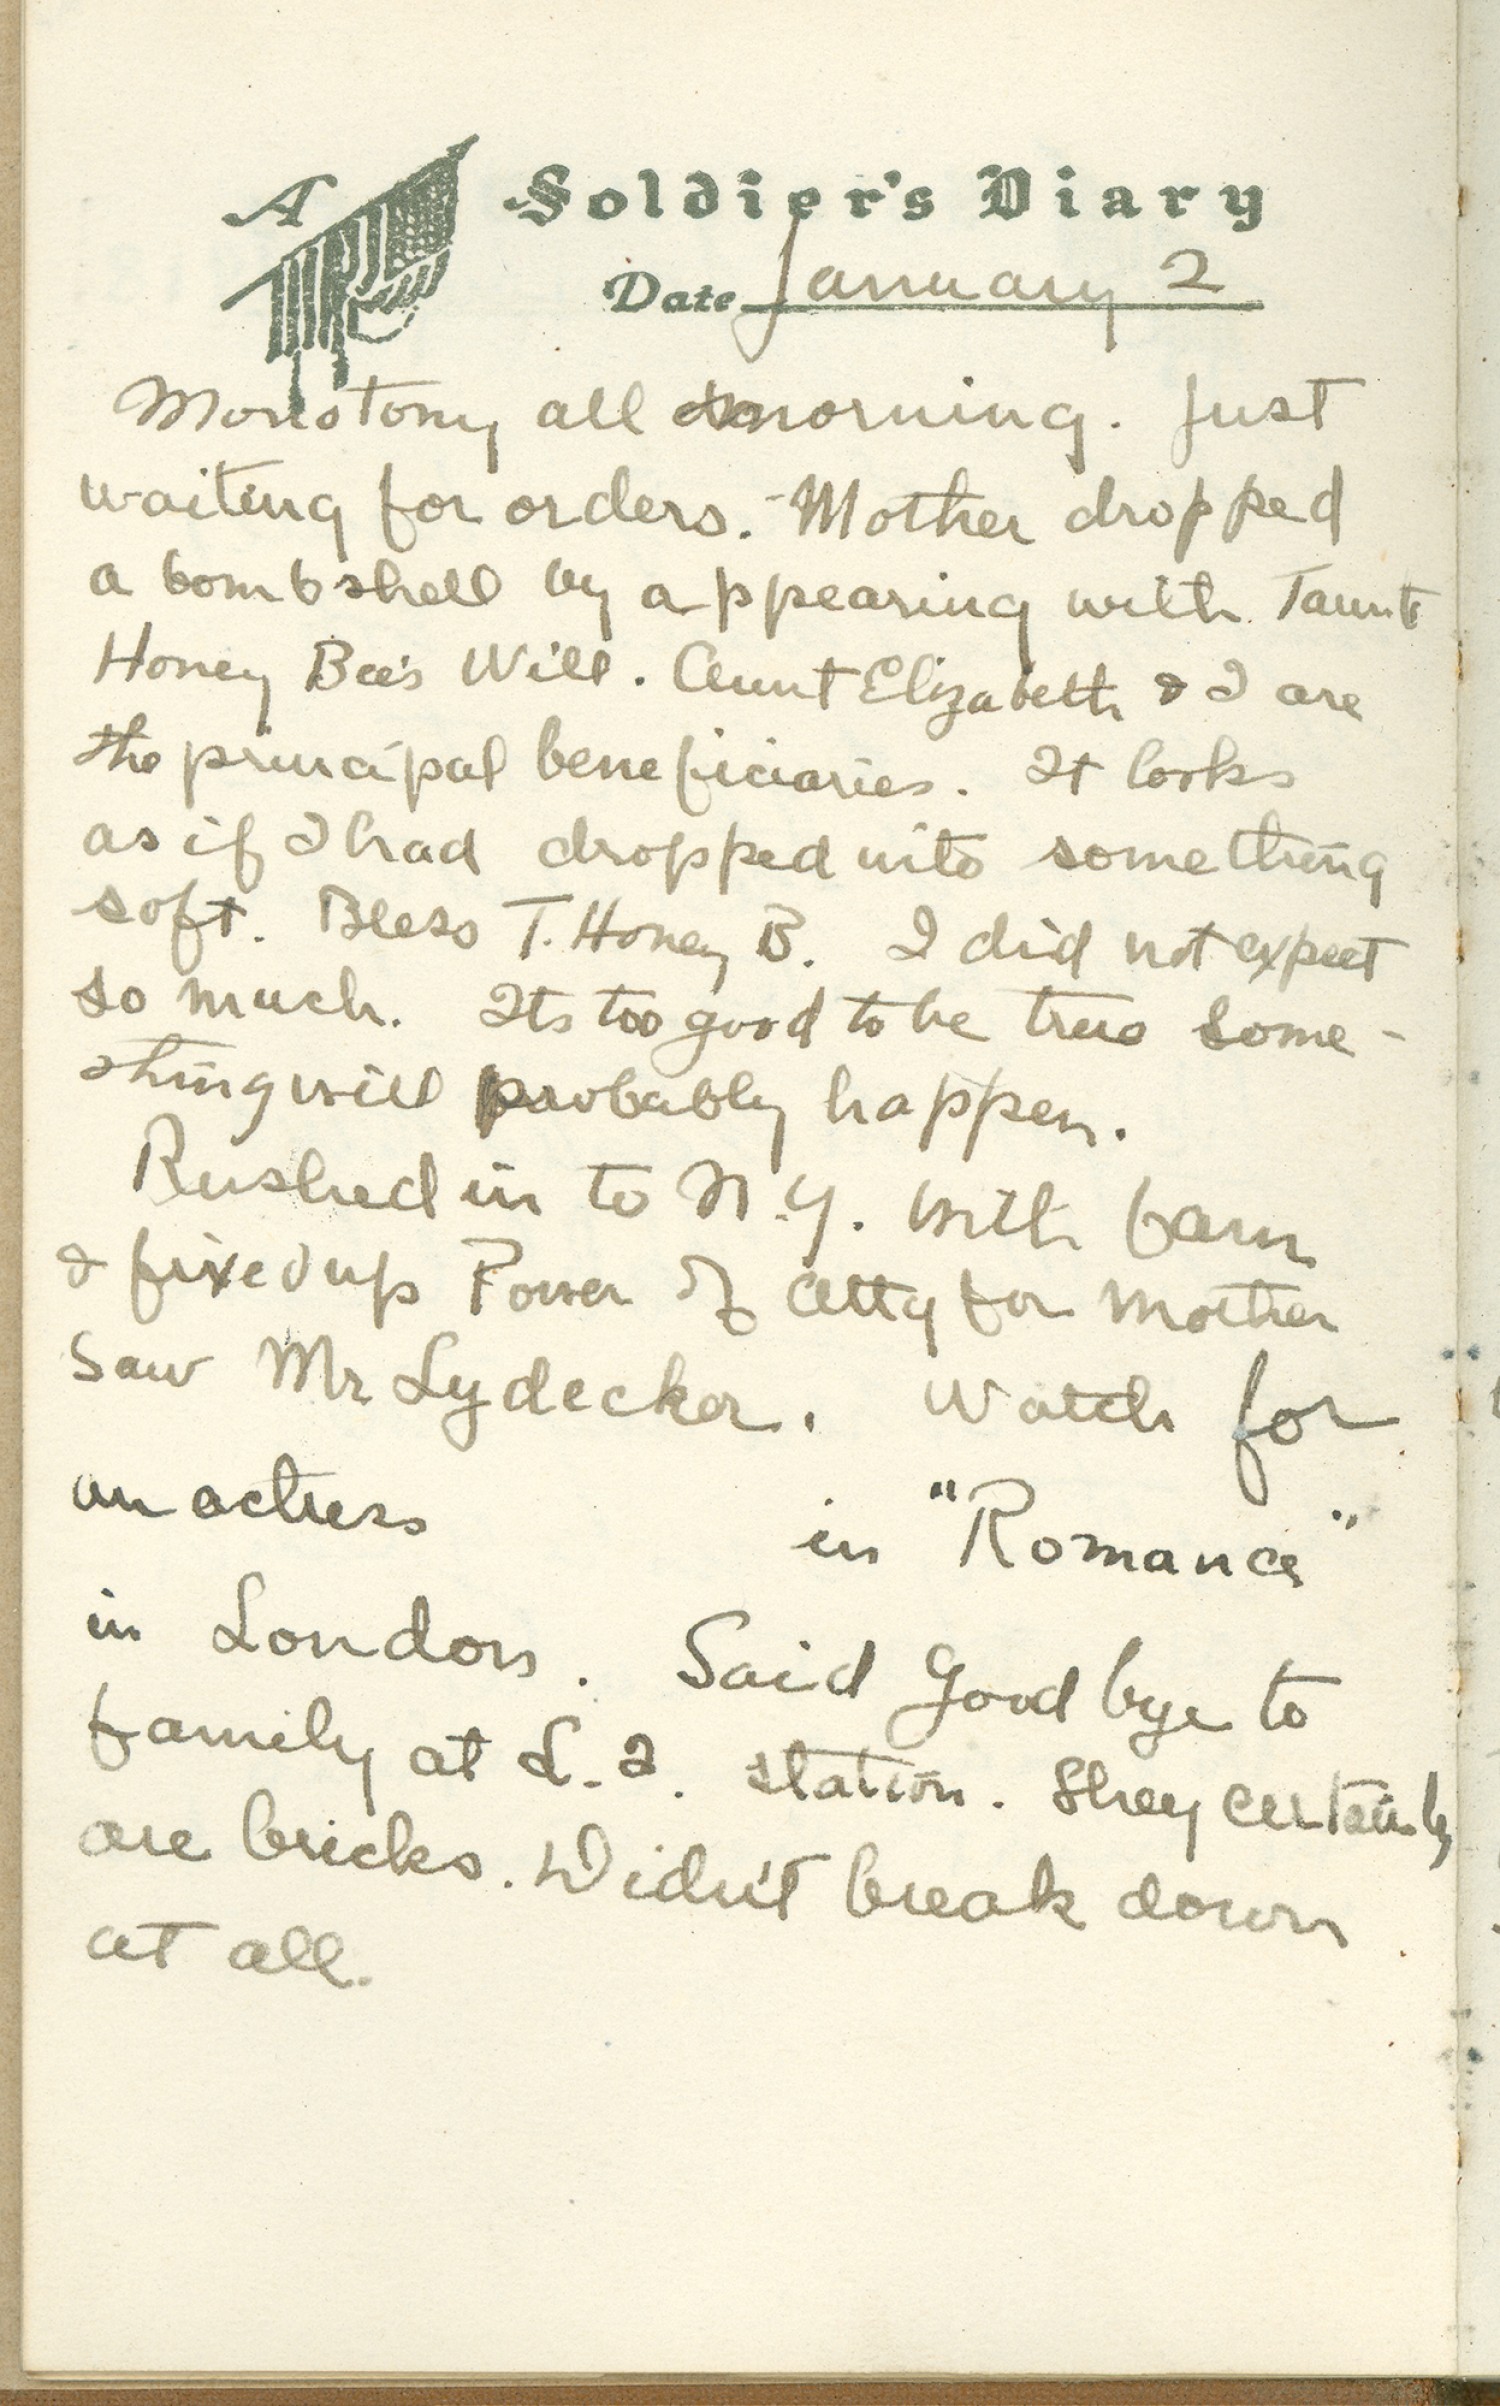 A Soldier's Diary
Date January 2
Monotony all morning. Just
waiting for orders. Mother dropped
a bombshell by appearing with Taunt
Honey Bee's Will. Aunt Elizabeth & I are
the principal beneficiaries. It looks
as if I had dropped into something
soft. Bless T. Honey B. I did not expect
so much. Its too good to be true some-
thing will probably happen.
Rushed in to N.Y. with fam
& fixed up Power of Atty for Mother
Saw Mr Lydecker. Watch for
an actress in "Romance"
in London. Said Good bye to
family at L.I. station. They certainly
are bricks. Didn't break down
at all.